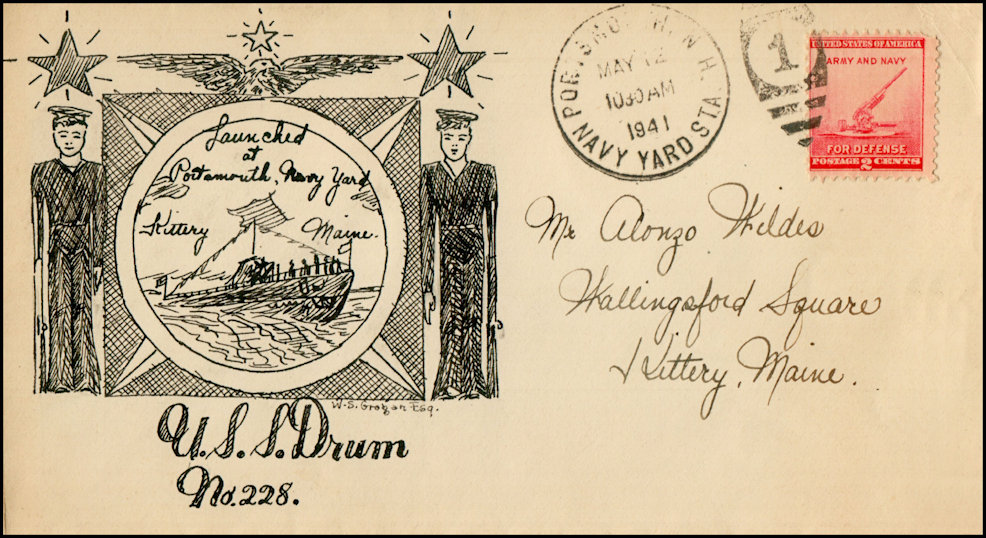 Launched
at
Portsmouth, Navy Yard
Kittery Maine.
W.S. Esq.
U.S.S. Drum
No. 228.
PORTSMOUTH, N.H.
NAVY YARD STA.
MAY 12
1030 AM
1941
1
UNITED STATES OF AMERICA
ARMY AND NAVY
FOR DEFENSE
POSTAGE 2 CENTS
Mr Alonzo Wildes
Wallingsford Square
Kittery, Maine.